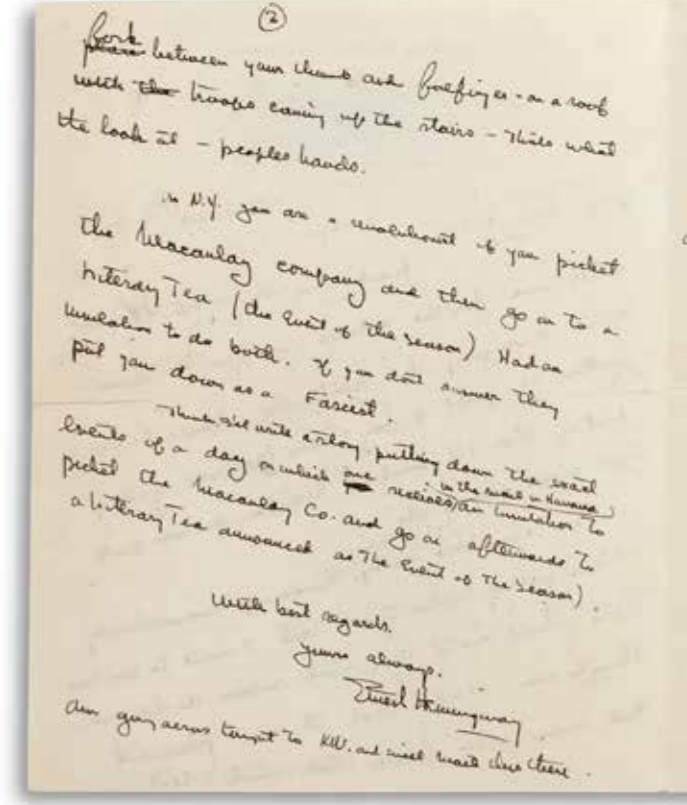 ②
fork
between your thumb and forefinger - on a roof
with the troops coming up the stairs - Thats what
the look at - peoples hands.
in N.Y. you are a revolutionist if you picket
the Macaulay company and then go on to a
Literary Tea (the Event of the Season) Had an
invitation to do both. If you dont answer they
put you down as a Fascist.
Think I'll write a story putting down the exact
events of a day on which one receives (in the mail in Havana) an invitation to
picket the Macaulay Co. and go on afterwards to
a Literary Tea announced as The Event of The Season).
With best regards.
Yours always.
Ernest Hemingway
Am going across tonight to KW. and will mail this there.